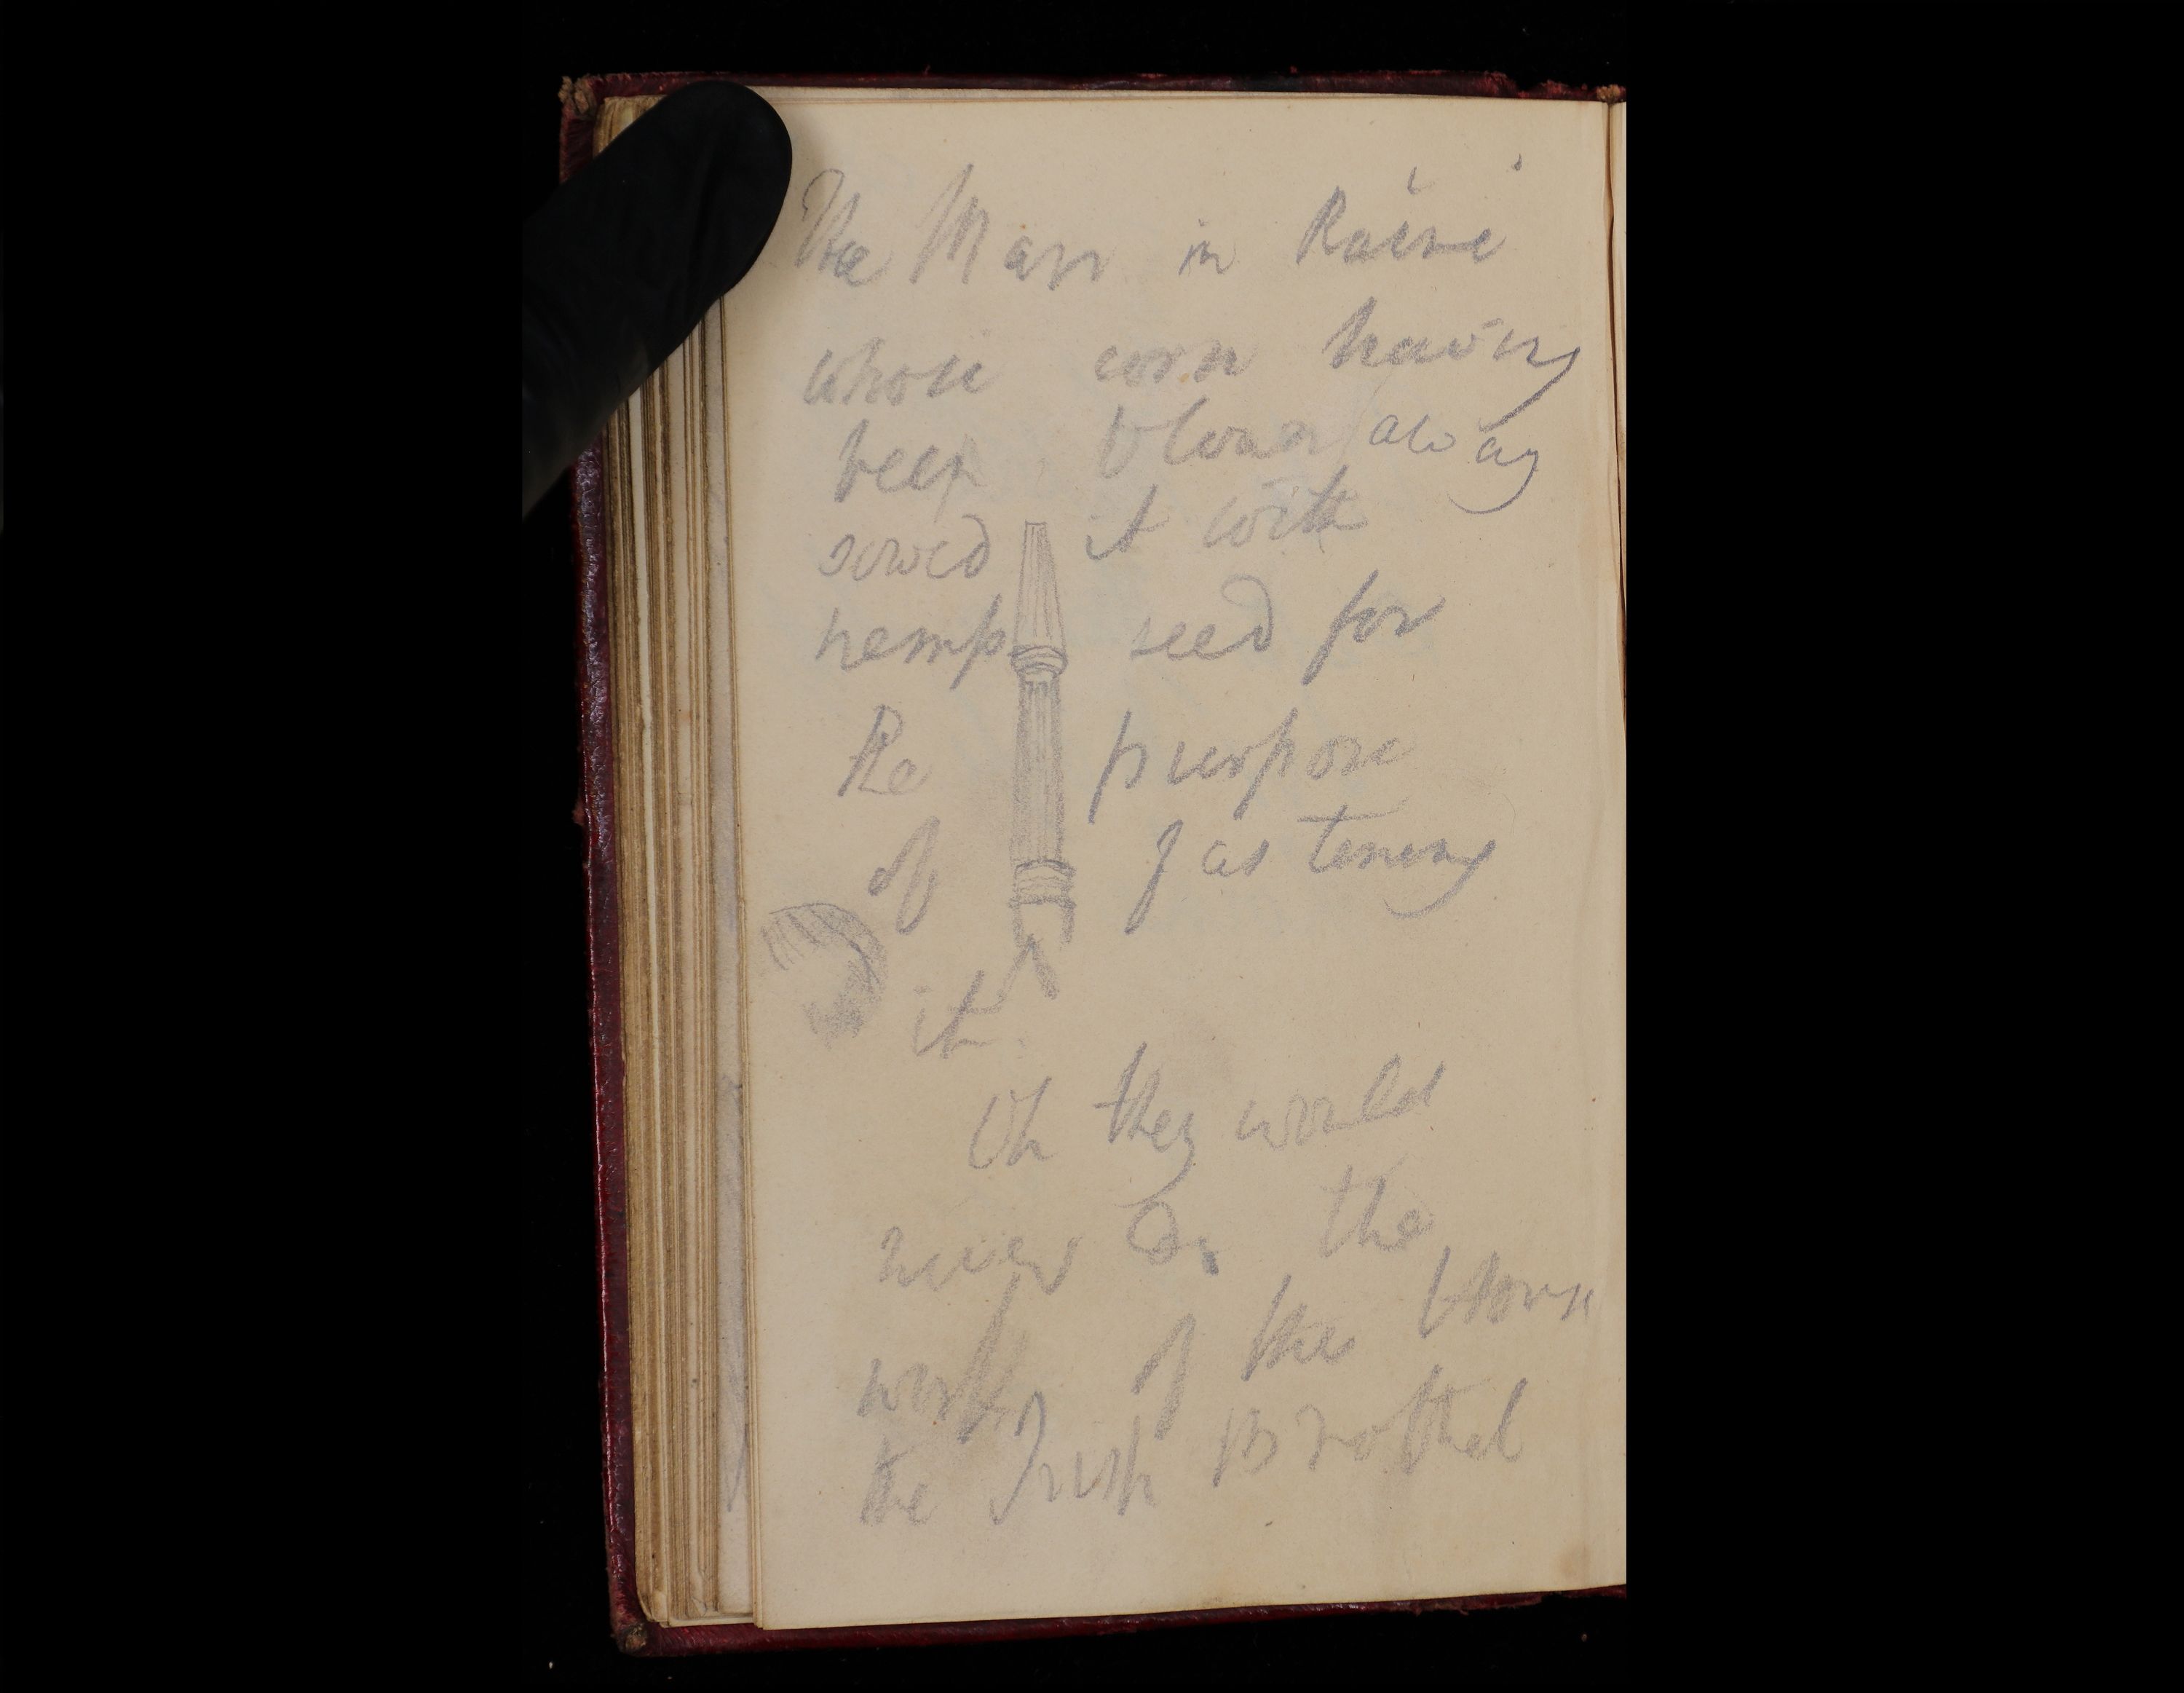 The Man in Raine
whose corn having
been blown away
sowed it with
hemp seed for
the purpose
of fastening
it.
Oh they would
never do the
work of the House
the Irish Brothel